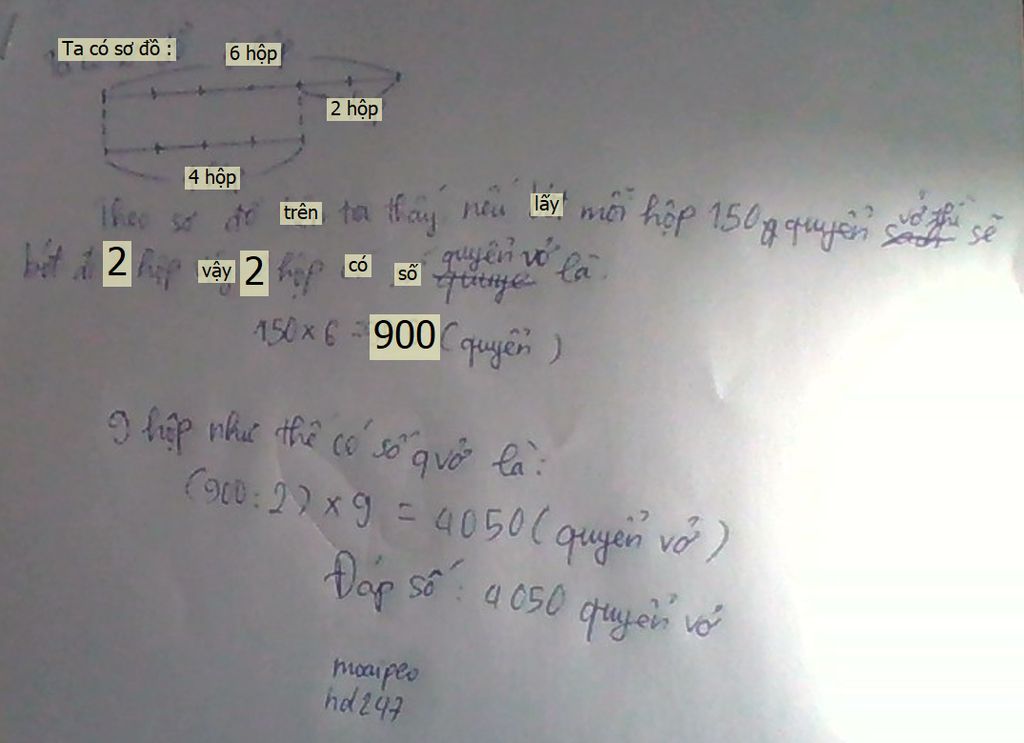 Ta có sơ đồ :
6 hộp
2 hộp
4 hộp
Theo sơ đồ trên ta thấy nếu lấy mỗi hộp 150 quyển vở thì sẽ
bớt đi 2 hộp vậy 2 hộp có số quyển vở là:
150 x 6 = 900 (quyển)
9 hộp như thế có số vở là:
(900 : 2) x 9 = 4050 (quyển vở)
Đáp số: 4050 quyển vở
hd247